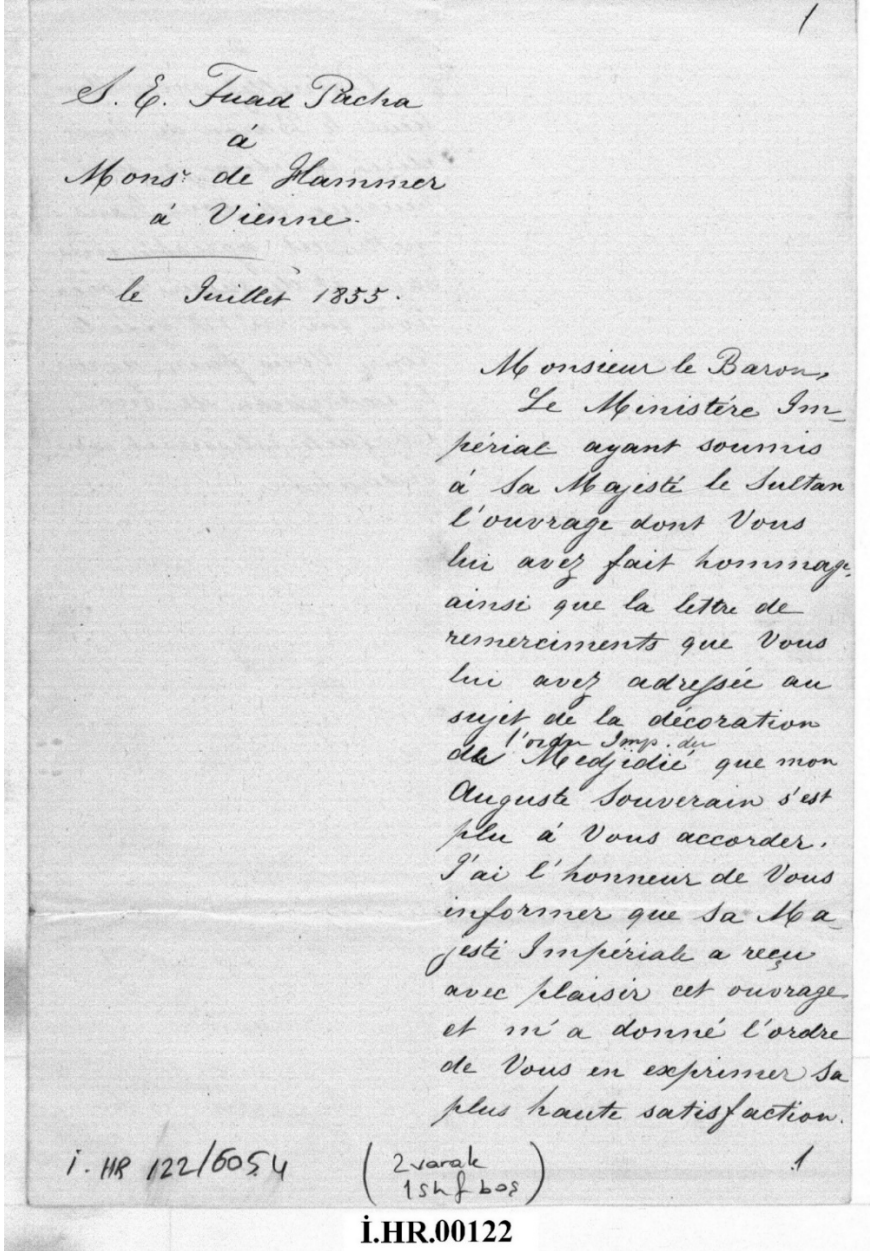 1
S. E. Fuad Pacha
à
Monsr. de Hammer
à Vienne.
le Juillet 1855.
Monsieur le Baron,
Le Ministère Im_
périal ayant soumis
à Sa Majesté le Sultan
l'ouvrage dont Vous
lui avez fait hommage,
ainsi que la lettre de
remerciments que Vous
lui avez adressée au
sujet de la décoration
l'ordre Imp. du
de Medjidié que mon
Auguste Souverain s'est
plu à Vous accorder.
J'ai l'honneur de Vous
informer que Sa Ma_
jesté Impériale a reçu
avec plaisir cet ouvrage
et m'a donné l'ordre
de Vous en exprimer Sa
plus haute satisfaction.
İ. HR 122/6054
(2 varak
1 shf boş)
1
İ.HR.00122